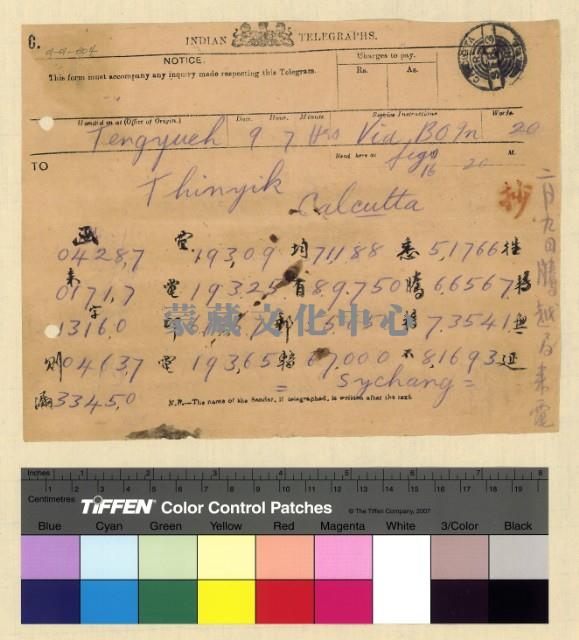 6.
INDIAN TELEGRAPHS.
NOTICE.
This form must accompany any inquiry made respecting this Telegram.
Charges to pay.
Rs. As.
Handed in at (Office of Origin). Date. Hour. Minute. Service Instructions Words
Tengyueh 9 7 Hrs Via 20
Recd. here at
16 20
TO
Thinyik
Calcutta
抄
二月九日騰越局來電
電 均 悉
04287 19309 71188 51766
來 電 百 騰
01717 19325 89750 66567
字 無
13160 73541
則 電 不
04637 19365 67000 81693
33450 = Sychang =
N.B.—The name of the Sender, if telegraphed, is written after the text.
蒙藏文化中心
Inches 1 2 3 4 5 6 7 8
Centimetres 1 2 3 4 5 6 7 8 9 10 11 12 13 14 15 16 17 18 19
TIFFEN Color Control Patches © The Tiffen Company, 2007
Blue Cyan Green Yellow Red Magenta White 3/Color Black